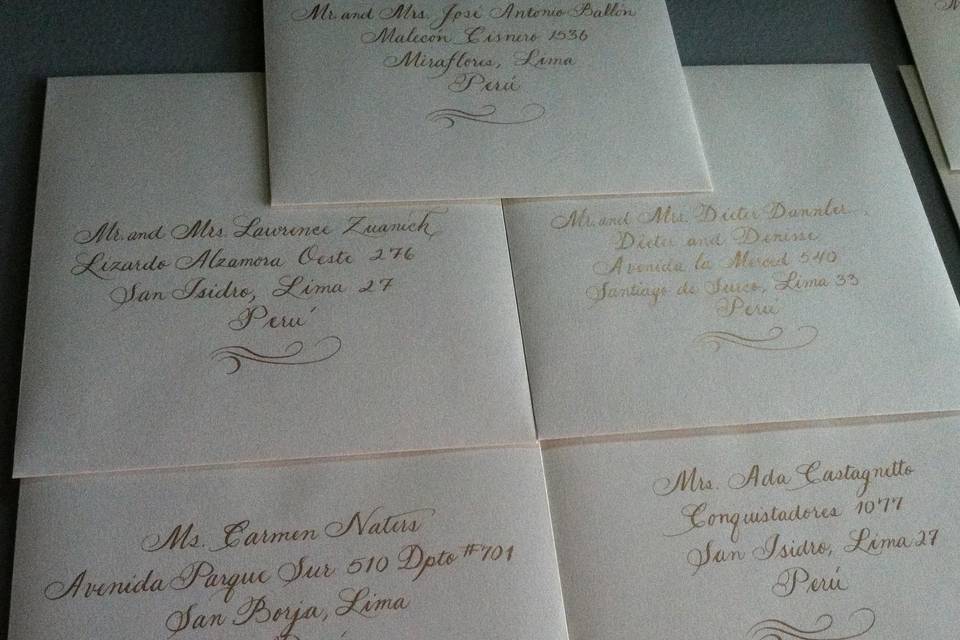 Mr. and Mrs. José Antonio Ballón
Malecón Cisnero 1536
Miraflores, Lima
Perú
Mr. and Mrs. Lawrence Zuanich
Lizardo Alzamora Oeste 276
San Isidro, Lima 27
Perú
Mr. and Mrs. Dieter Dannler
Dieter and Denisse
Avenida la Merced 540
Santiago de Surco, Lima 33
Perú
Ms. Carmen Naters
Avenida Parque Sur 510 Dpto #701
San Borja, Lima
Mrs. Ada Castagnetto
Conquistadores 1077
San Isidro, Lima 27
Perú